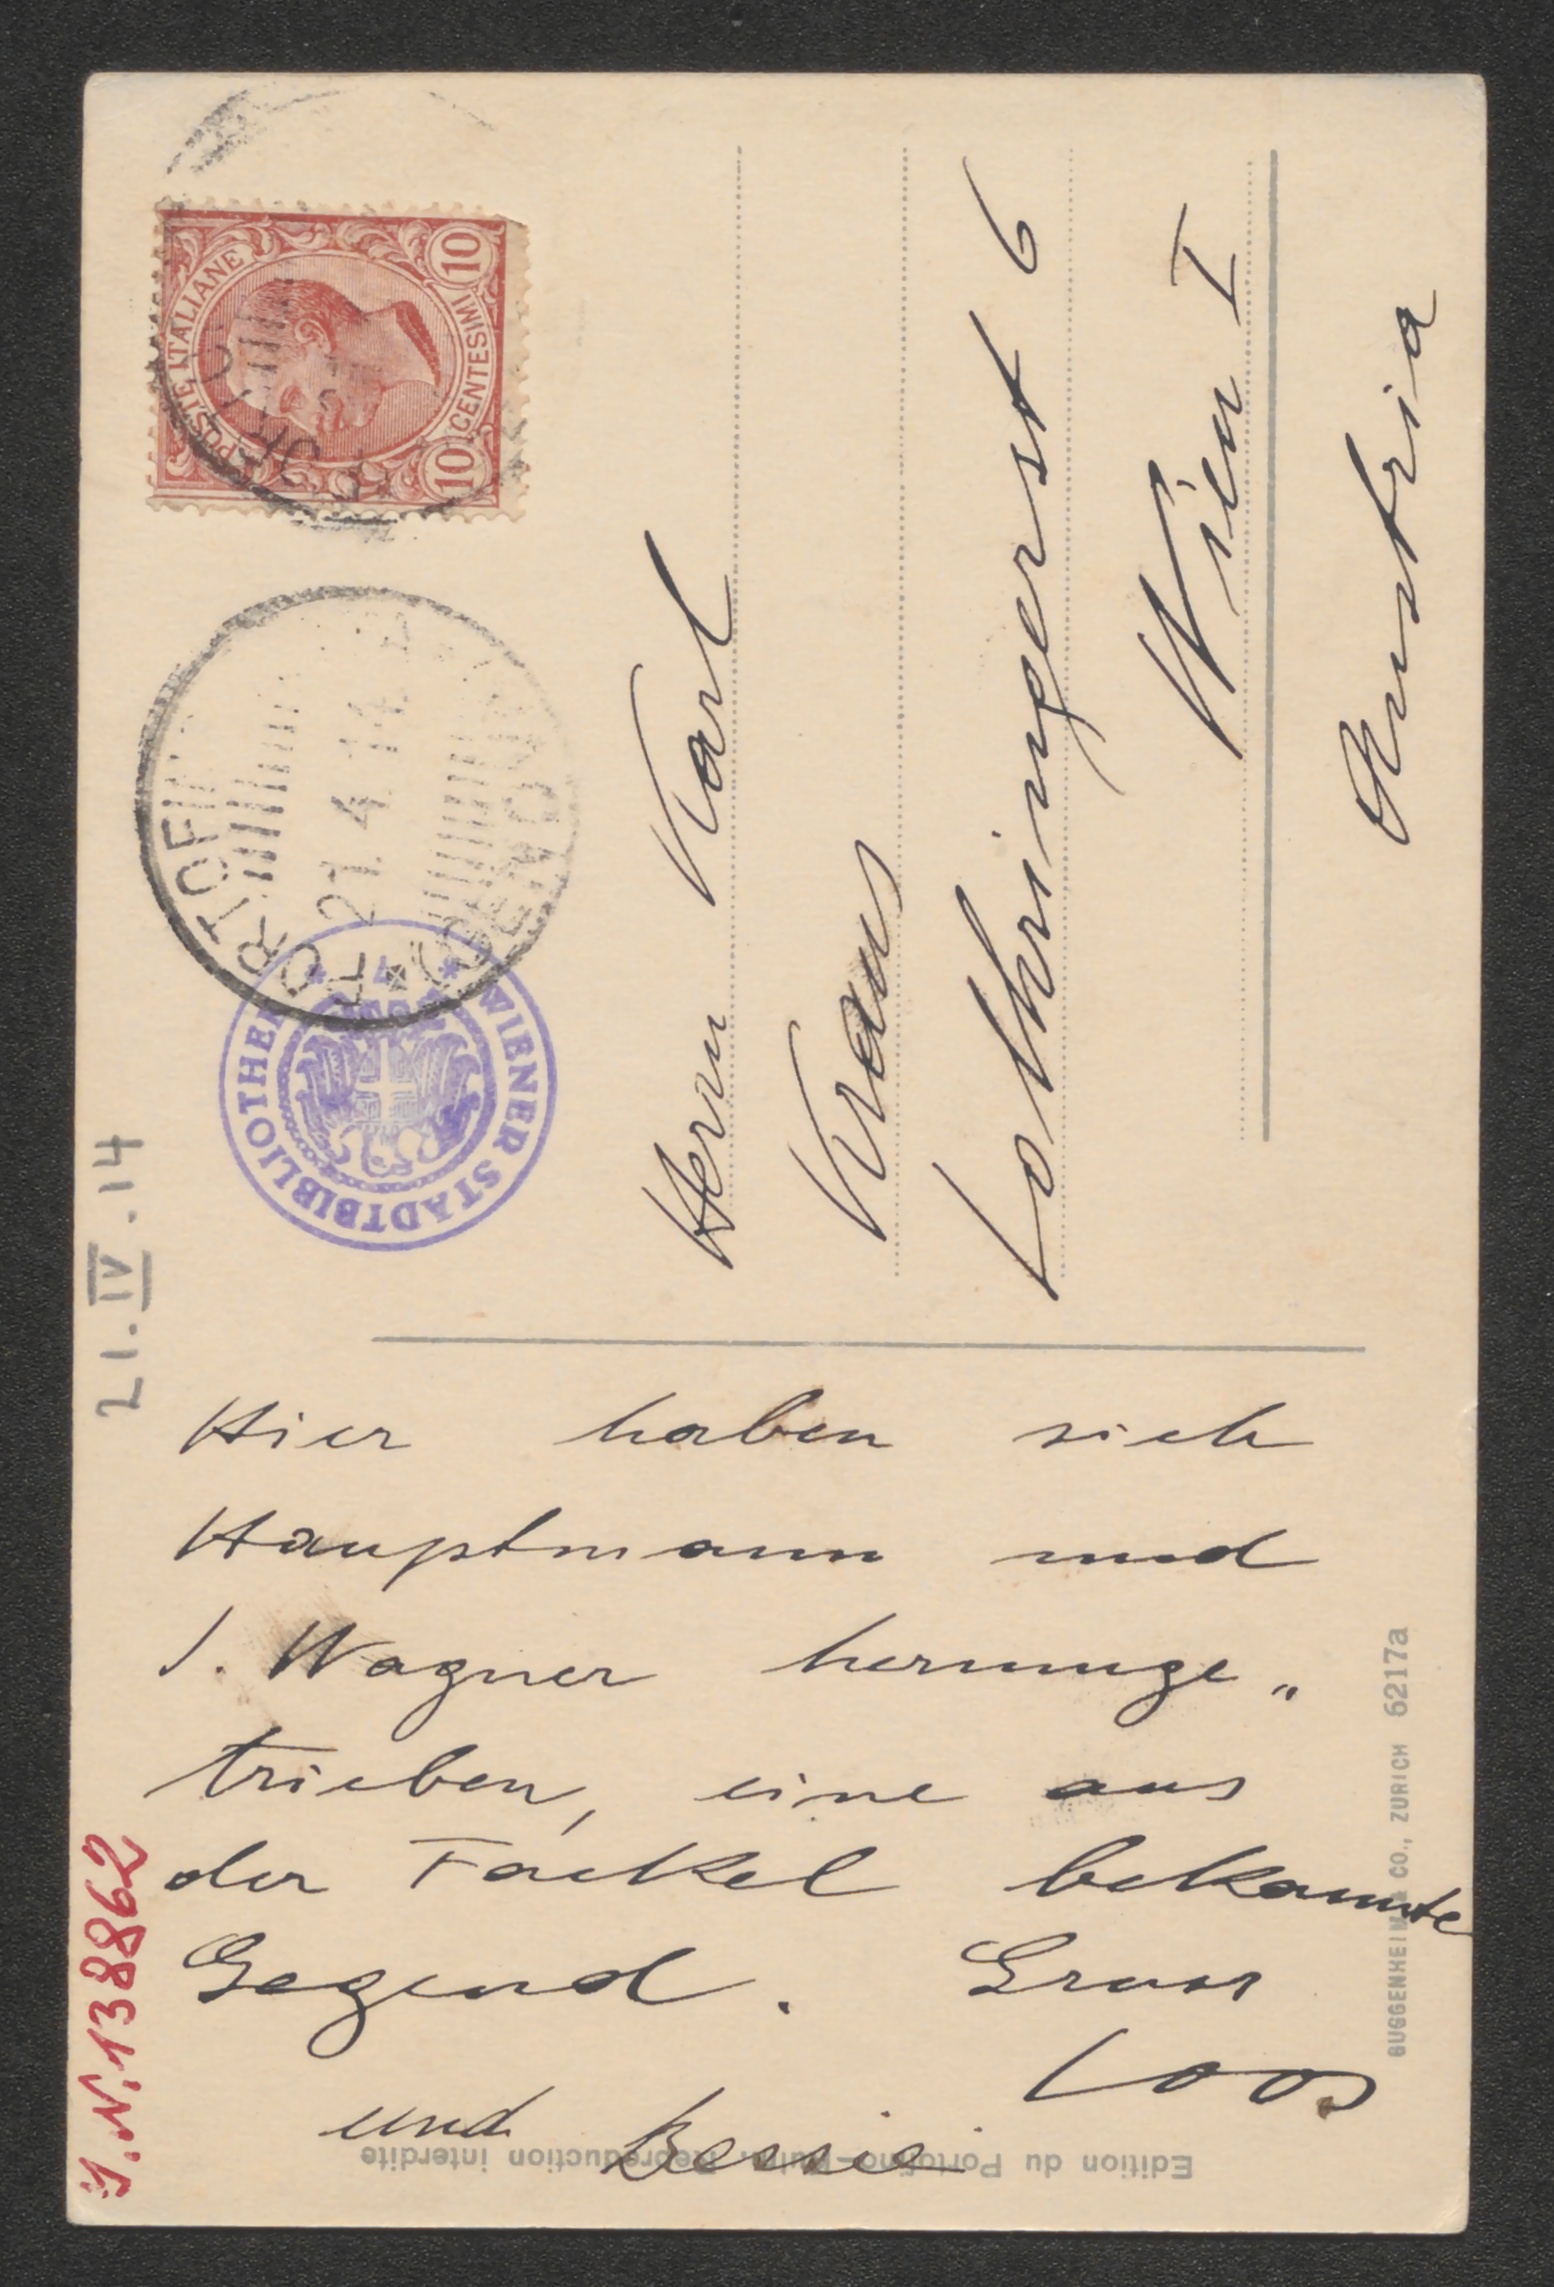 POSTE ITALIANE
10 CENTESIMI 10
PORTOFI
21. 4. 14
(GENOVA)
WIENER STADTBIBLIOTHEK
21.IV.14
Herrn Karl
Kraus
Lothringerst 6
Wien I
Austria
Hier haben sich
Hauptmann und
S. Wagner herumge„
trieben, eine aus
der Fackel bekannte
Gegend. Gruss
Loos
und Bessie
I.N.138862
GUGGENHEIM & CO., ZURICH 6217a
Edition du Portofino-Kulm. Reproduction interdite